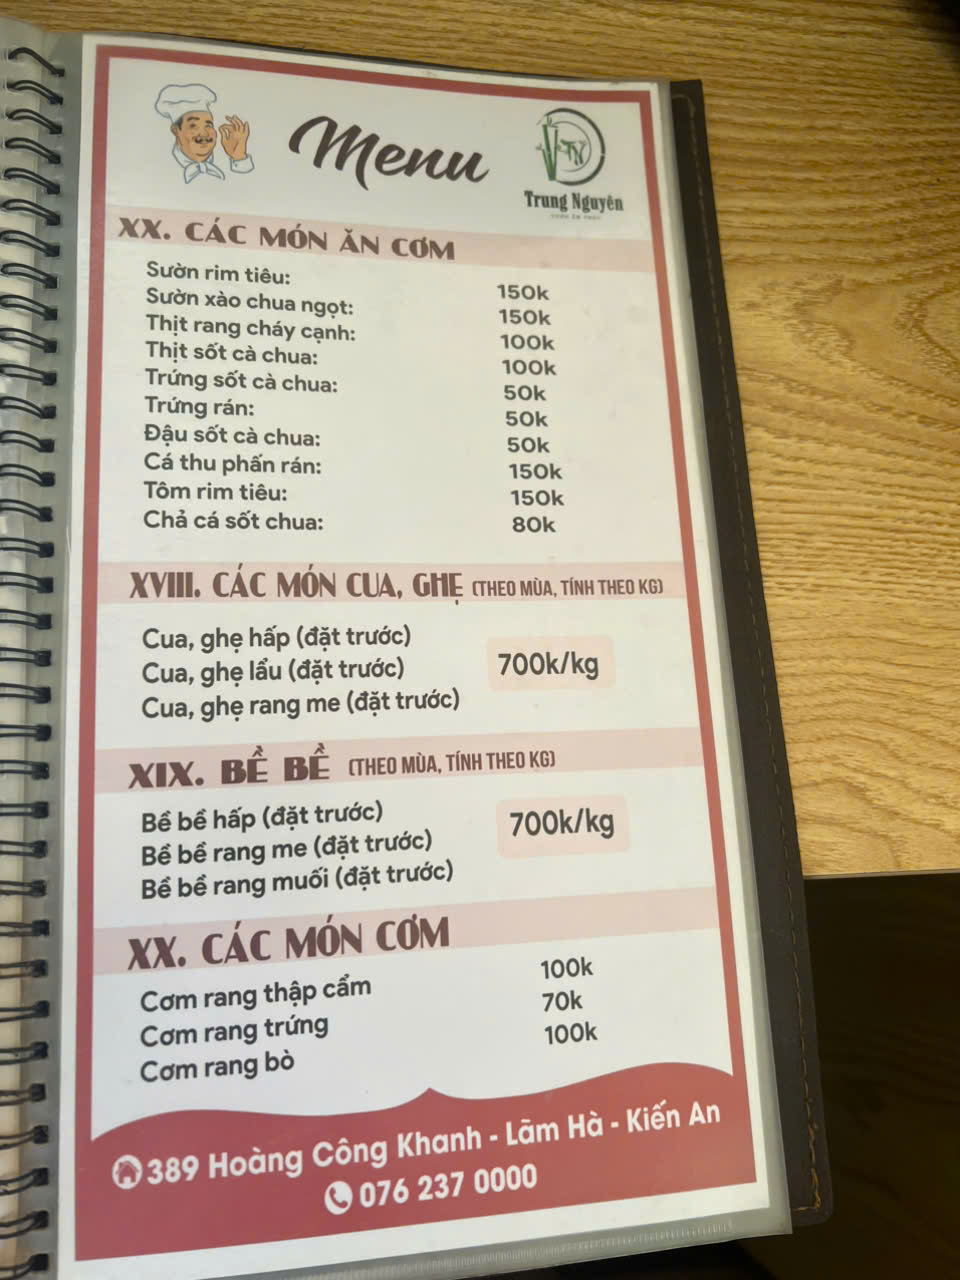 Menu
Trung Nguyên
XX. CÁC MÓN ĂN CƠM
Sườn rim tiêu: 150k
Sườn xào chua ngọt: 150k
Thịt rang cháy cạnh: 100k
Thịt sốt cà chua: 100k
Trứng sốt cà chua: 50k
Trứng rán: 50k
Đậu sốt cà chua: 50k
Cá thu phấn rán: 150k
Tôm rim tiêu: 150k
Chả cá sốt chua: 80k
XVIII. CÁC MÓN CUA, GHẸ (THEO MÙA, TÍNH THEO KG)
Cua, ghẹ hấp (đặt trước)
Cua, ghẹ lẩu (đặt trước) 700k/kg
Cua, ghẹ rang me (đặt trước)
XIX. BỀ BỀ (THEO MÙA, TÍNH THEO KG)
Bề bề hấp (đặt trước)
Bề bề rang me (đặt trước) 700k/kg
Bề bề rang muối (đặt trước)
XX. CÁC MÓN CƠM
Cơm rang thập cẩm 100k
Cơm rang trứng 70k
Cơm rang bò 100k
389 Hoàng Công Khanh - Lãm Hà - Kiến An
076 237 0000